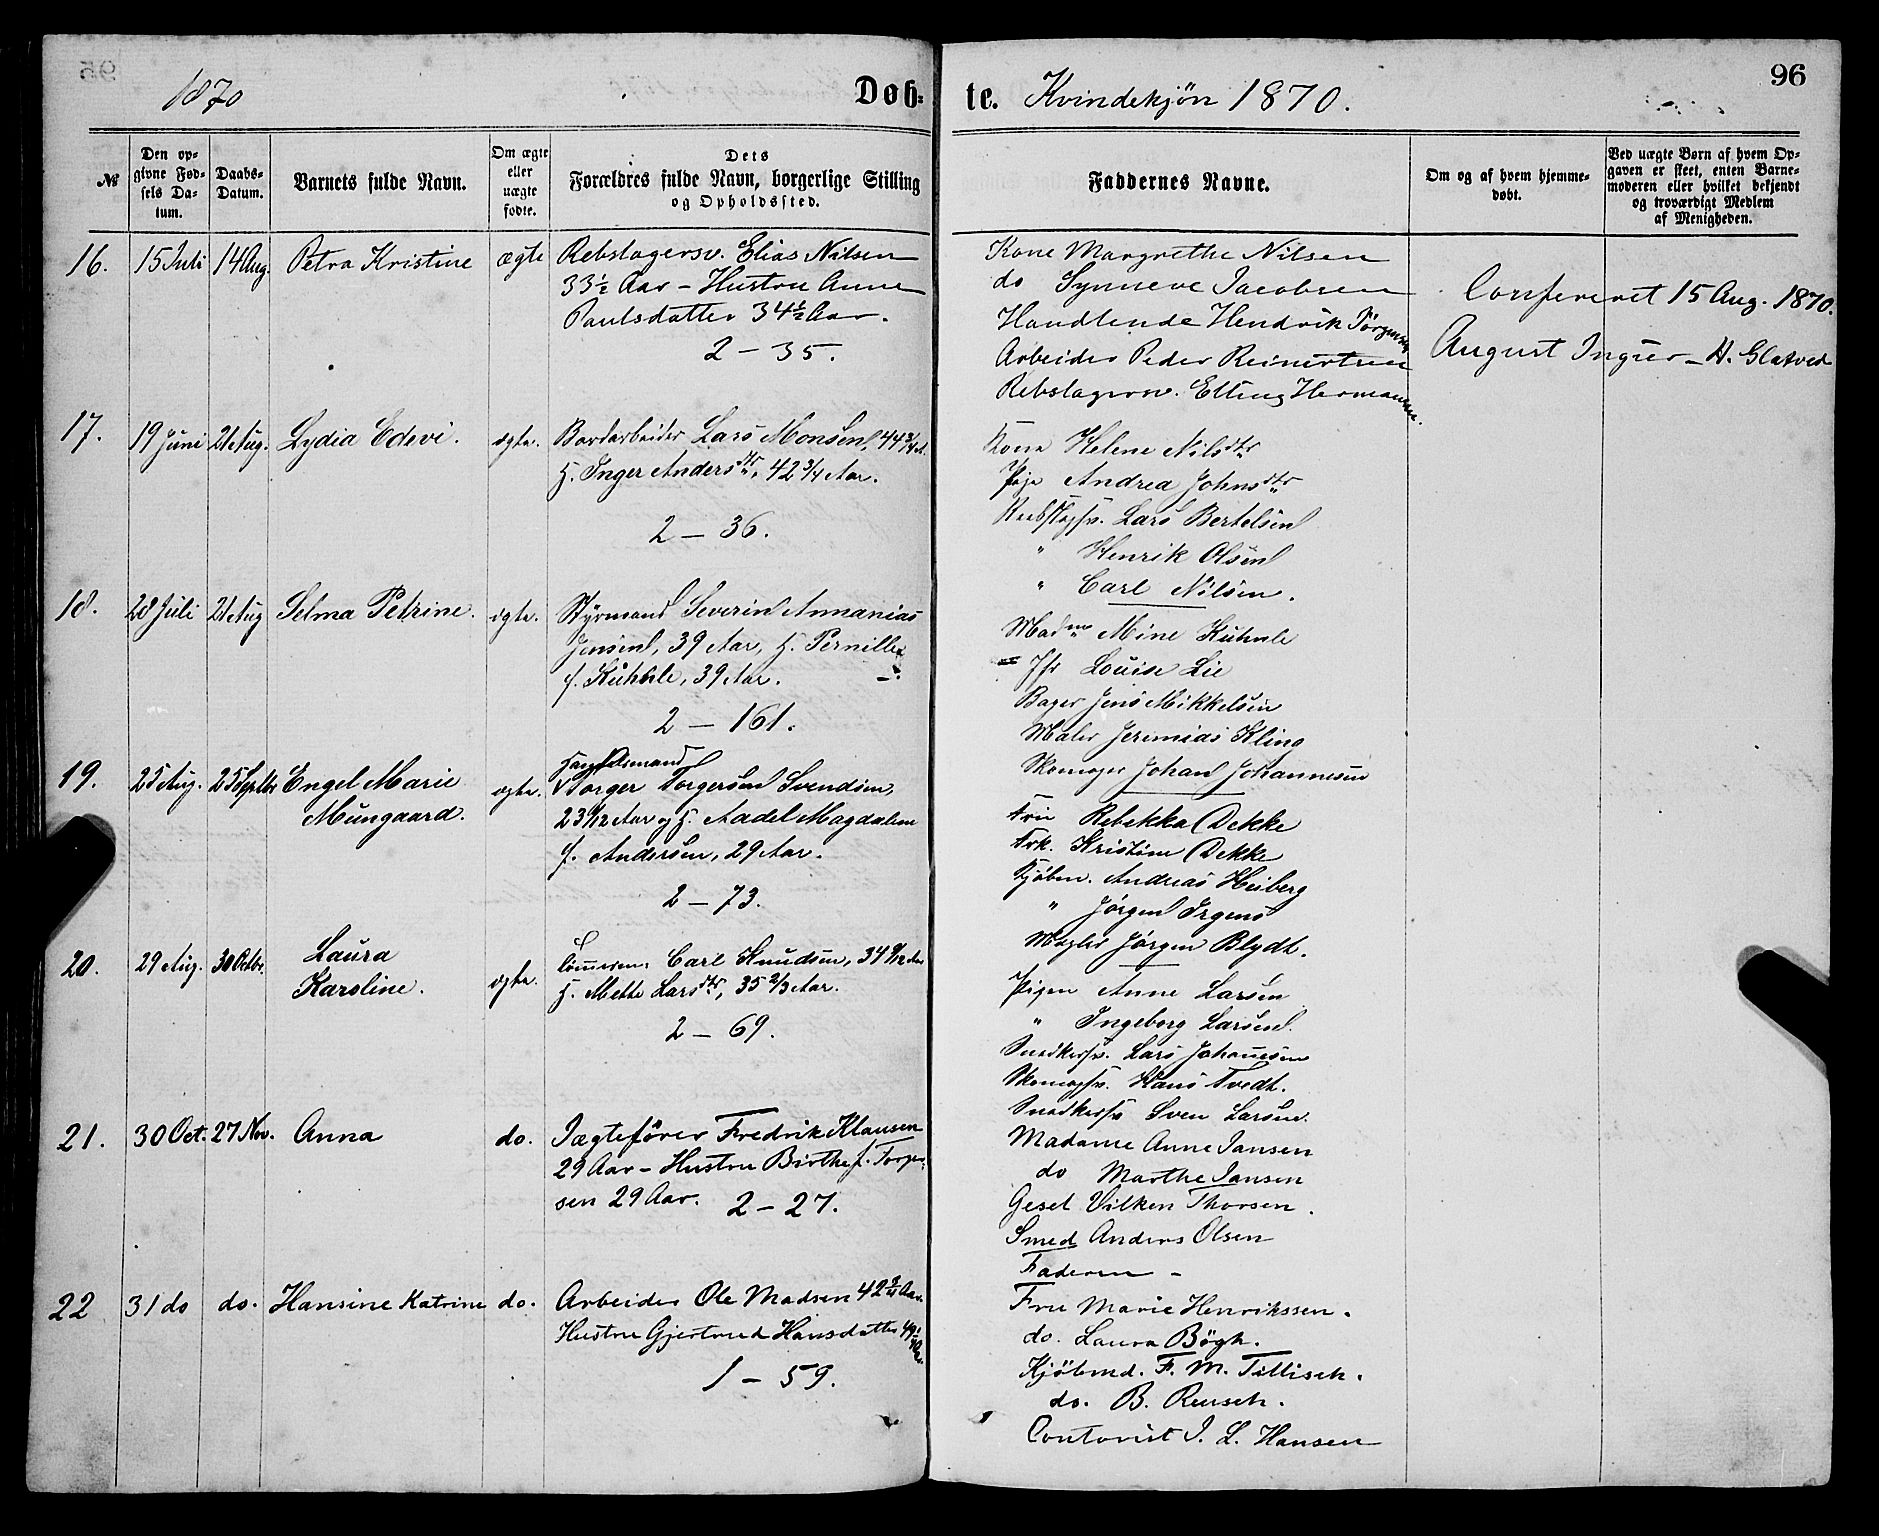 1870 Døb-
№
Den op-
givne Fød-
sels Da-
tum.
Daabs-
Datum.
Barnets fulde Navn.
Om ægte
eller
uægte
fødte.
Dets
Forældres fulde Navn, borgerlige Stilling
og Opholdssted.
16. 15 Juli 14 Aug. Petra Kristine ægte Rebslagersv. Elias Nilsen
33½ Aar – Hustru Anne
Paulsdatter 34½ Aar.
2 – 35.
17. 19 Juni 21 Aug. Lydia Edevi. ægte. Bordarbeider Lars Monsen, 44¾ A.
H. Inger Andersdtr, 42¾ Aar.
2 – 36.
18. 28 Juli 21 Aug Selma Petrine. ægte. Styrmand Severin Annanias
Jensen, 39 Aar, H. Pernille
f. Kuhnle, 39 Aar.
2 – 161.
19. 25 Aug. 25 Septbr Engel Marie ægte. Borger Torgersen Svendsen,
Mungaard. 23 1/12 Aar og H. Aadel Magdalene
f. Andersen, 29 Aar.
2 – 73.
20. 29 Aug. 30 Octbr. Laura
Karoline. ægte. Carl Knudsen, 34 9/12 Aar
H. Mette Larsdtr, 35 2/3 Aar.
2 – 69.
21. 30 Oct. 27 Nov. Anna do. Jægtefører Fredrik Klausen
29 Aar – Hustru Birthe f. Torger-
sen 29 Aar. 2 – 27.
22 31 do do. Hansine Katrine do. Arbeider Ole Madsen 42¾ Aar.
Hustru Gjertrud Hansdatter
1 – 59.
te. Kvindekjøn 1870.
96
Faddernes Navne.
Om og af hvem hjemme-
døbt.
Ved uægte Børn af hvem Op-
gaven er skeet, enten Barne-
moderen eller hvilket bekjendt
og troværdigt Medlem
af Menigheden.
Kone Margrethe Nilsen
do Synneve Jacobsen
Handlende Hendrik Jørgensen
Arbeider Peder Reinertsen
Rebslagersv. Elling Hermansen.
Confereret 15 Aug. 1870.
August Inguer – H. Glatved
Kone Helene Nilsdtr
Pige Andrea Johnsdtr
Rebslagsv. Lars Bertelsen
" Henrik Olsen
" Carl Nilsen.
Madme Mine Kuhnle
Jfr Louise Lie
Bager Jens Mikkelsen
Maler Jeremias Kling
Skomager Johan Johannesen
Fru Rebekka Dekke
Frk. Kristine Dekke
Kjøbm. Andreas Heiberg
" Jørgen Irgens
Mægler Jørgen Blydt.
Pigen Anne Larsen
" Ingeborg Larsen.
Snedkersv. Lars Johanesen
Skomagsv. Hans Tvedt.
Snedkersv Sven Larsen.
Madame Anne Jansen
do Marthe Jansen
Gesel Vilken Thorsen.
Smed Anders Olsen
Faderen –
Fru Marie Henrikssen.
do. Laura Bøgh.
Kjøbmd. F. M. Tillisch.
do. B. Reusch.
Contorist J. L. Hansen